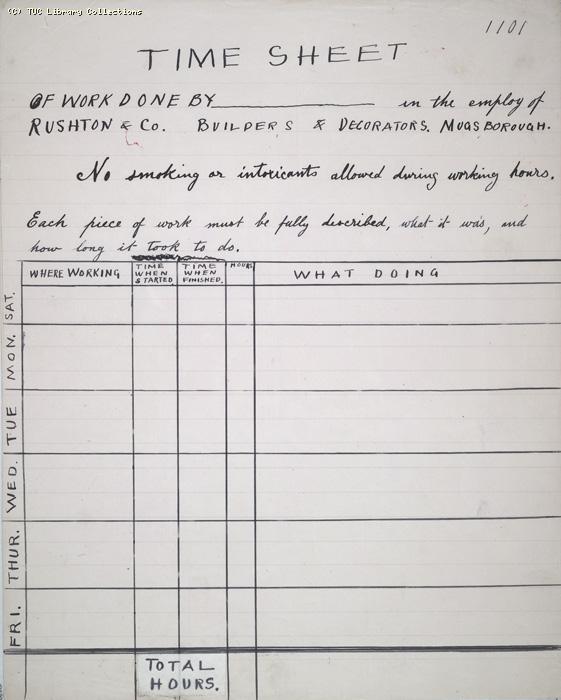 (C) TUC Library Collections
1101
TIME SHEET
OF WORK DONE BY____________ in the employ of
RUSHTON & Co. BUILDERS & DECORATORS. MUGSBOROUGH.
No smoking or intoxicants allowed during working hours.
Each piece of work must be fully described, what it was, and
how long it took to do.
WHERE WORKING
TIME
WHEN
STARTED
TIME
WHEN
FINISHED.
HOURS
WHAT DOING
SAT.
MON.
TUE
WED.
THUR.
FRI.
TOTAL
HOURS.